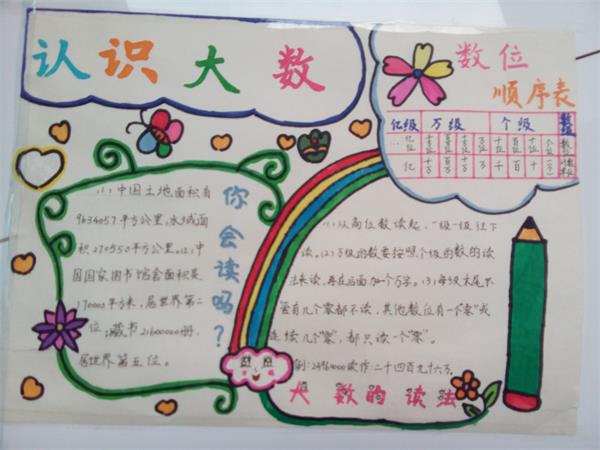 认识大数
数位
顺序表
亿级 万级 个级 数级
… 亿位 千万位 百万位 十万位 万位 千位 百位 十位 个位 数位
亿 千万 百万 十万 万 千 百 十 一(个)
你会读吗?
(1)中国土地面积有
9634057平方公里,水域面
积270550平方公里。(2)中
国国家图书馆舍面积是
170000平方米,居世界第二
位;藏书21600000册,
居世界第五位。
(1)从高位数读起,一级一级往下
读。(2)万级的数要按照个级的数的读
法来读,再在后面加个万字。(3)每级末尾不
管有几个零都不读,其他数位有一个"零"或
连续几个"零",都只读一个"零"。
读作:二十四百九十六万。
大数的读法